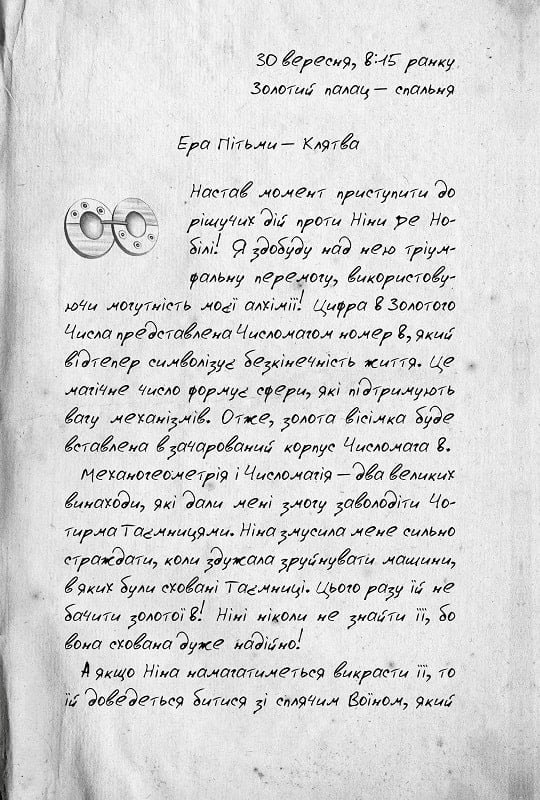 30 вересня, 8:15 ранку
Золотий палац — спальня
Ера Пітьми — Клятва
Настав момент приступити до
рішучих дій проти Ніни Де Но-
білі! Я здобуду над нею тріум-
фальну перемогу, використову-
ючи могутність моєї алхімії! Цифра 8 Золотого
Числа представлена Числомагом номер 8, який
відтепер символізує безкінечність життя. Це
магічне число формує сфери, які підтримують
вагу механізмів. Отже, золота вісімка буде
вставлена в зачарований корпус Числомага 8.
Механогеометрія і Числомагія — два великих
винаходи, які дали мені змогу заволодіти Чо-
тирма Таємницями. Ніна змусила мене сильно
страждати, коли здужала зруйнувати машини,
в яких були сховані Таємниці. Цього разу їй не
бачити золотої 8! Ніні ніколи не знайти її, бо
вона схована дуже надійно!
А якщо Ніна намагатиметься викрасти її, то
їй доведеться битися зі сплячим Воїном, який